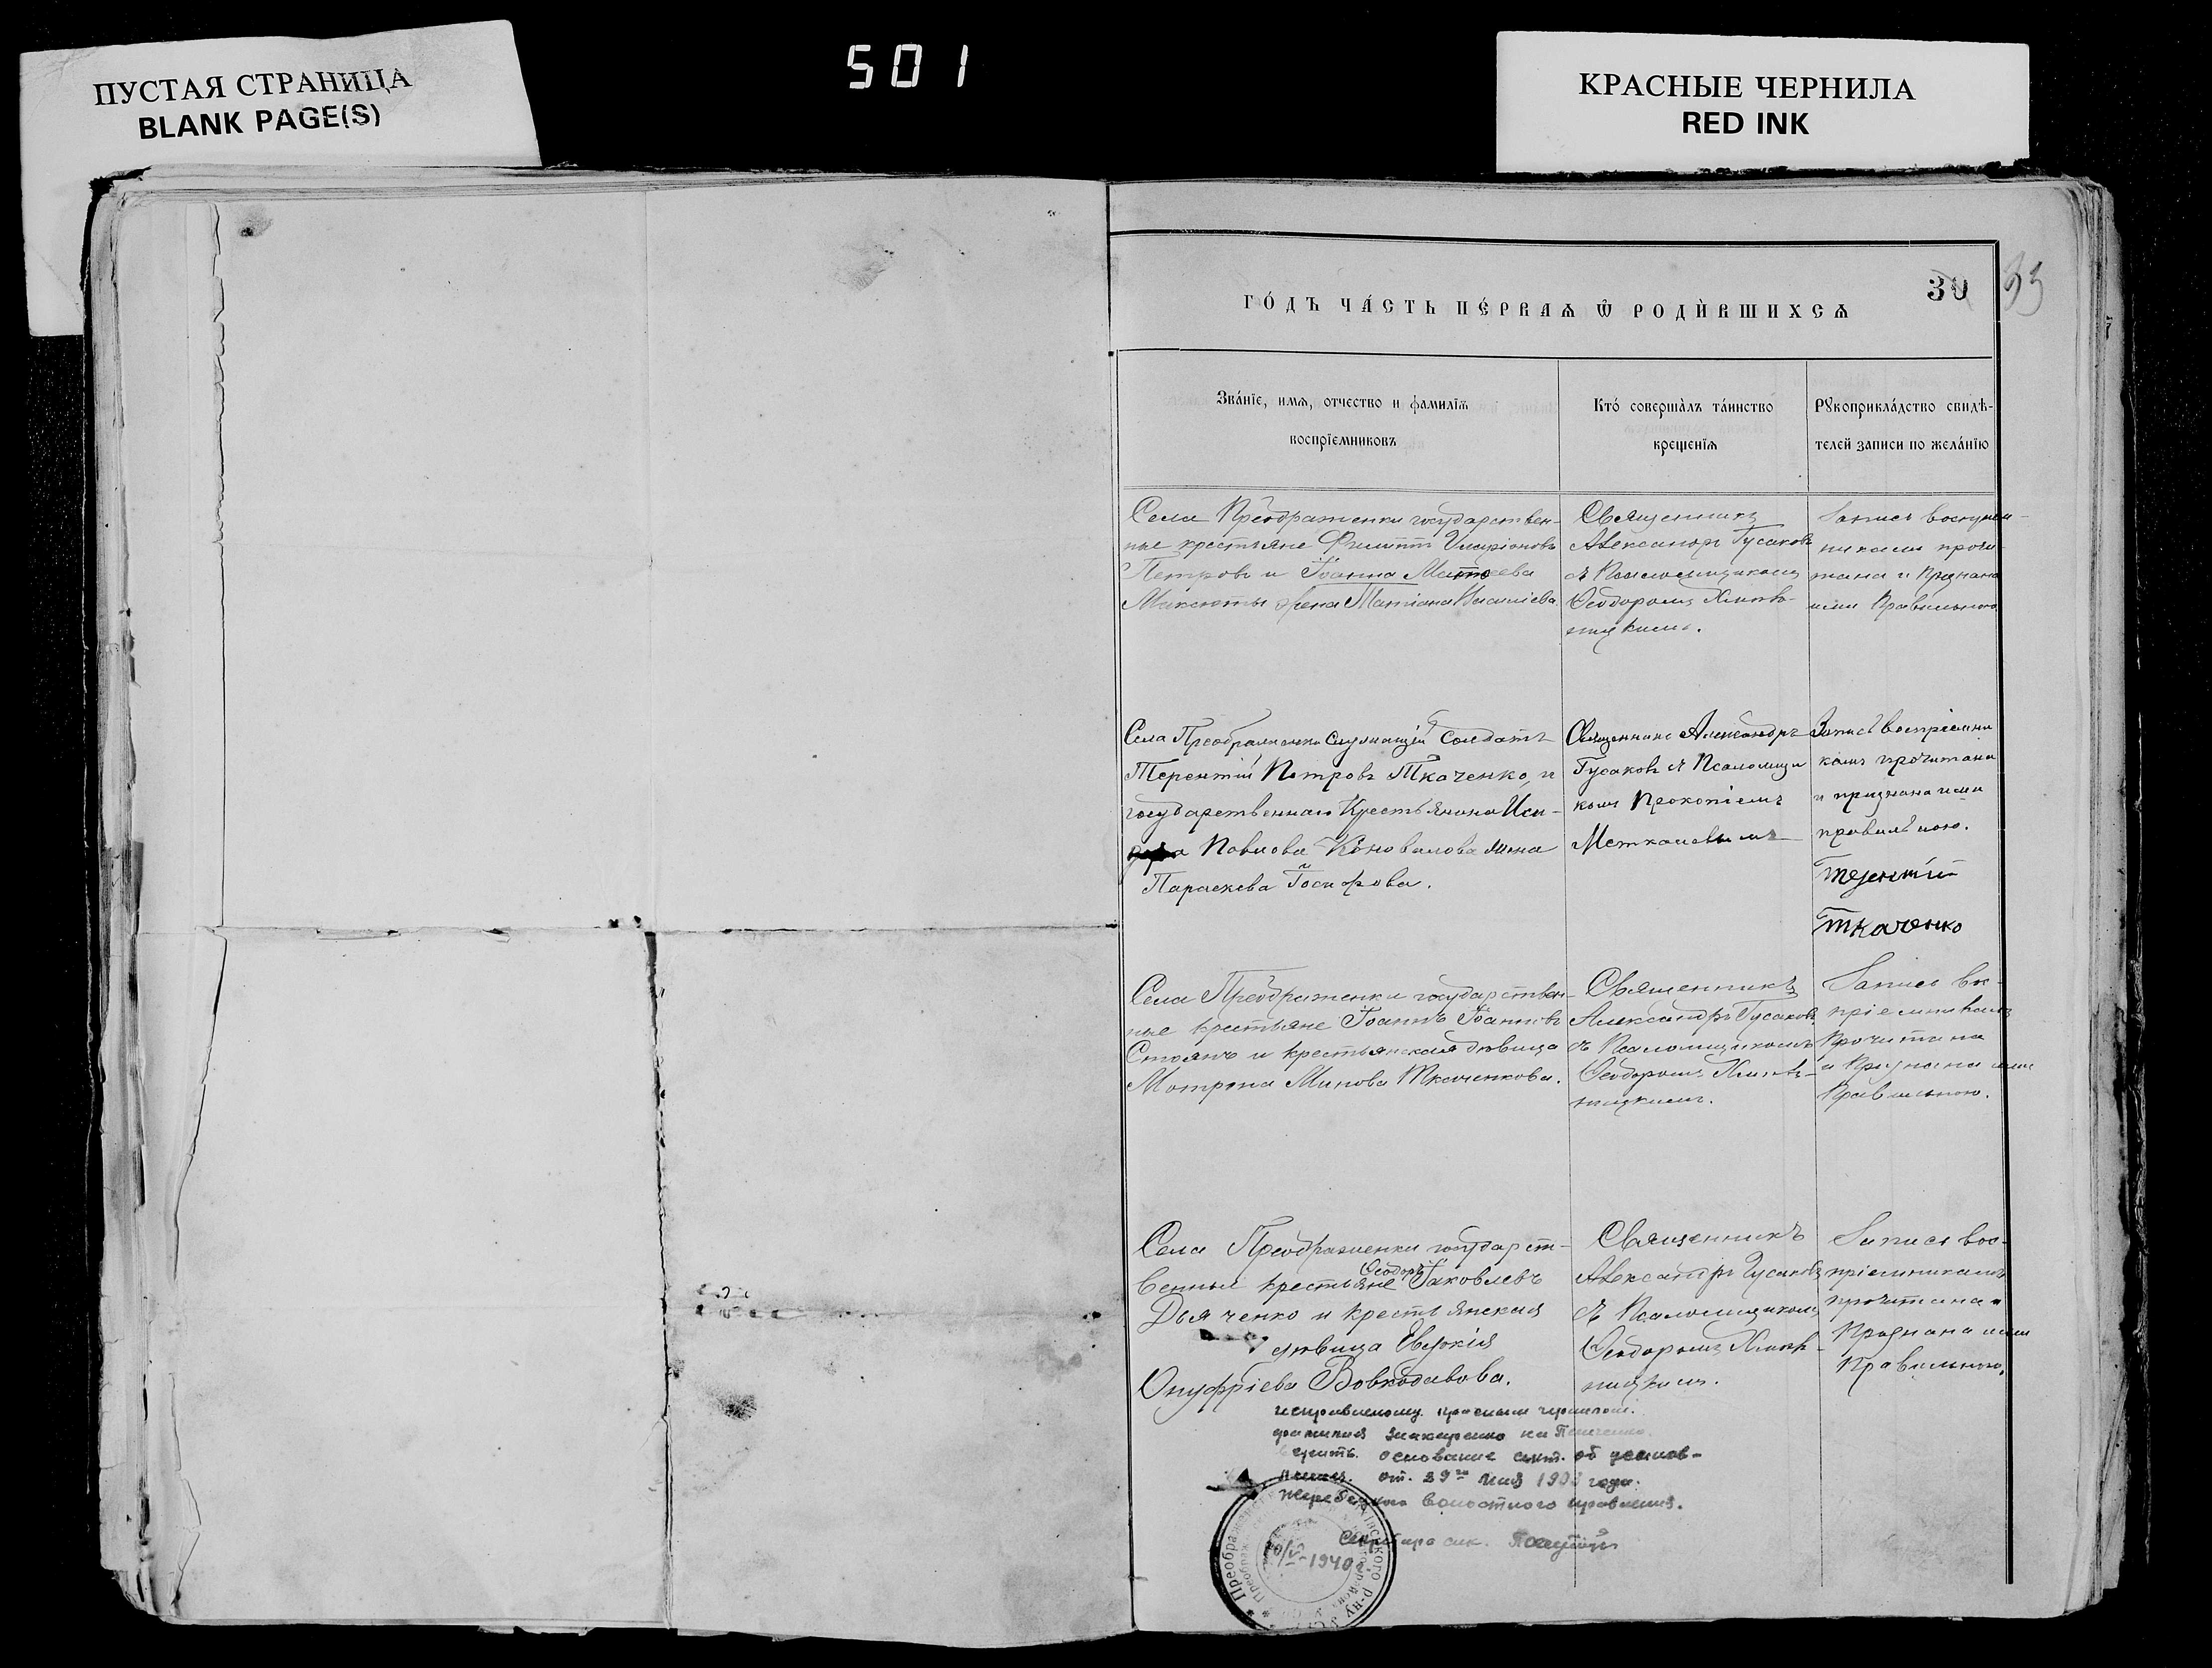 ПУСТАЯ СТРАНИЦА
BLANK PAGE(S)
501
КРАСНЫЕ ЧЕРНИЛА
RED INK
30
ГО́ДЪ ЧА́СТЬ ПЕ́РВАѦ Ѿ РОДИ́ВШИХСѦ
Зва́нїе, имѧ, отчество и фамилїѧ
воспрїемниковъ
Кто́ соверша́лъ та́инство
крещенїѧ
Рꙋкоприкла́дство свидѣ-
телей записи по жела́нїю
Села Преображенки государствен-
ные крестьяне Филиппъ Иларіоновъ
Петровъ и Іоанна Матѳеева
жена Татіана
Священникъ
Александръ Гусаковъ
съ Псаломщикомъ
Ѳеодоромъ
Запись воспріем-
никами прочи-
тана и Признана
ими Правильною
Села Преображенки служащій солдатъ
Терентій Петровъ Ткаченко, и
государственнаго Крестьянина Иси-
дора Павлова Коновалова жена
Параскева Іосифова.
Священникъ Александръ
Гусаковъ съ Псаломщи
комъ Прокопіемъ
Запись воспріемни
ками прочитана
и признана ими
правильною.
Терентій
Ткаченко
Села Преображенки государствен-
ные крестьяне Іоаннъ Іоанновъ
Стоянъ и крестьянская дѣвица
Мотрона Минова Ткаченкова.
Священникъ
Александръ Гусаковъ
съ Псаломщикомъ
Ѳеодоромъ
Запись вос-
пріемниками
Прочитана
и Признана ими
Правильною.
Села Преображенки государст-
венные крестьяне Ѳеодоръ Іаковлевъ
Дьяченко и крестьянская
дѣвица Евдокія
Онуфріева Вовкодавова.
Священникъ
Александръ Гусаковъ
съ Псаломщикомъ
Ѳеодоромъ
Запись вос-
пріемниками
прочитана и
Признана ими
Правильною.
исправленому красными чернилами
фамилия на
основание
от. 29го мая года.
волостного правления.
1940